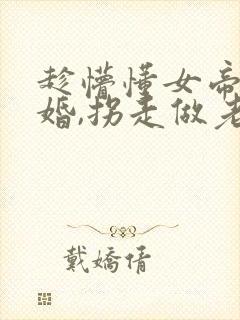 趁懵懂女帝
婚,拐走做老
戴嬌倩